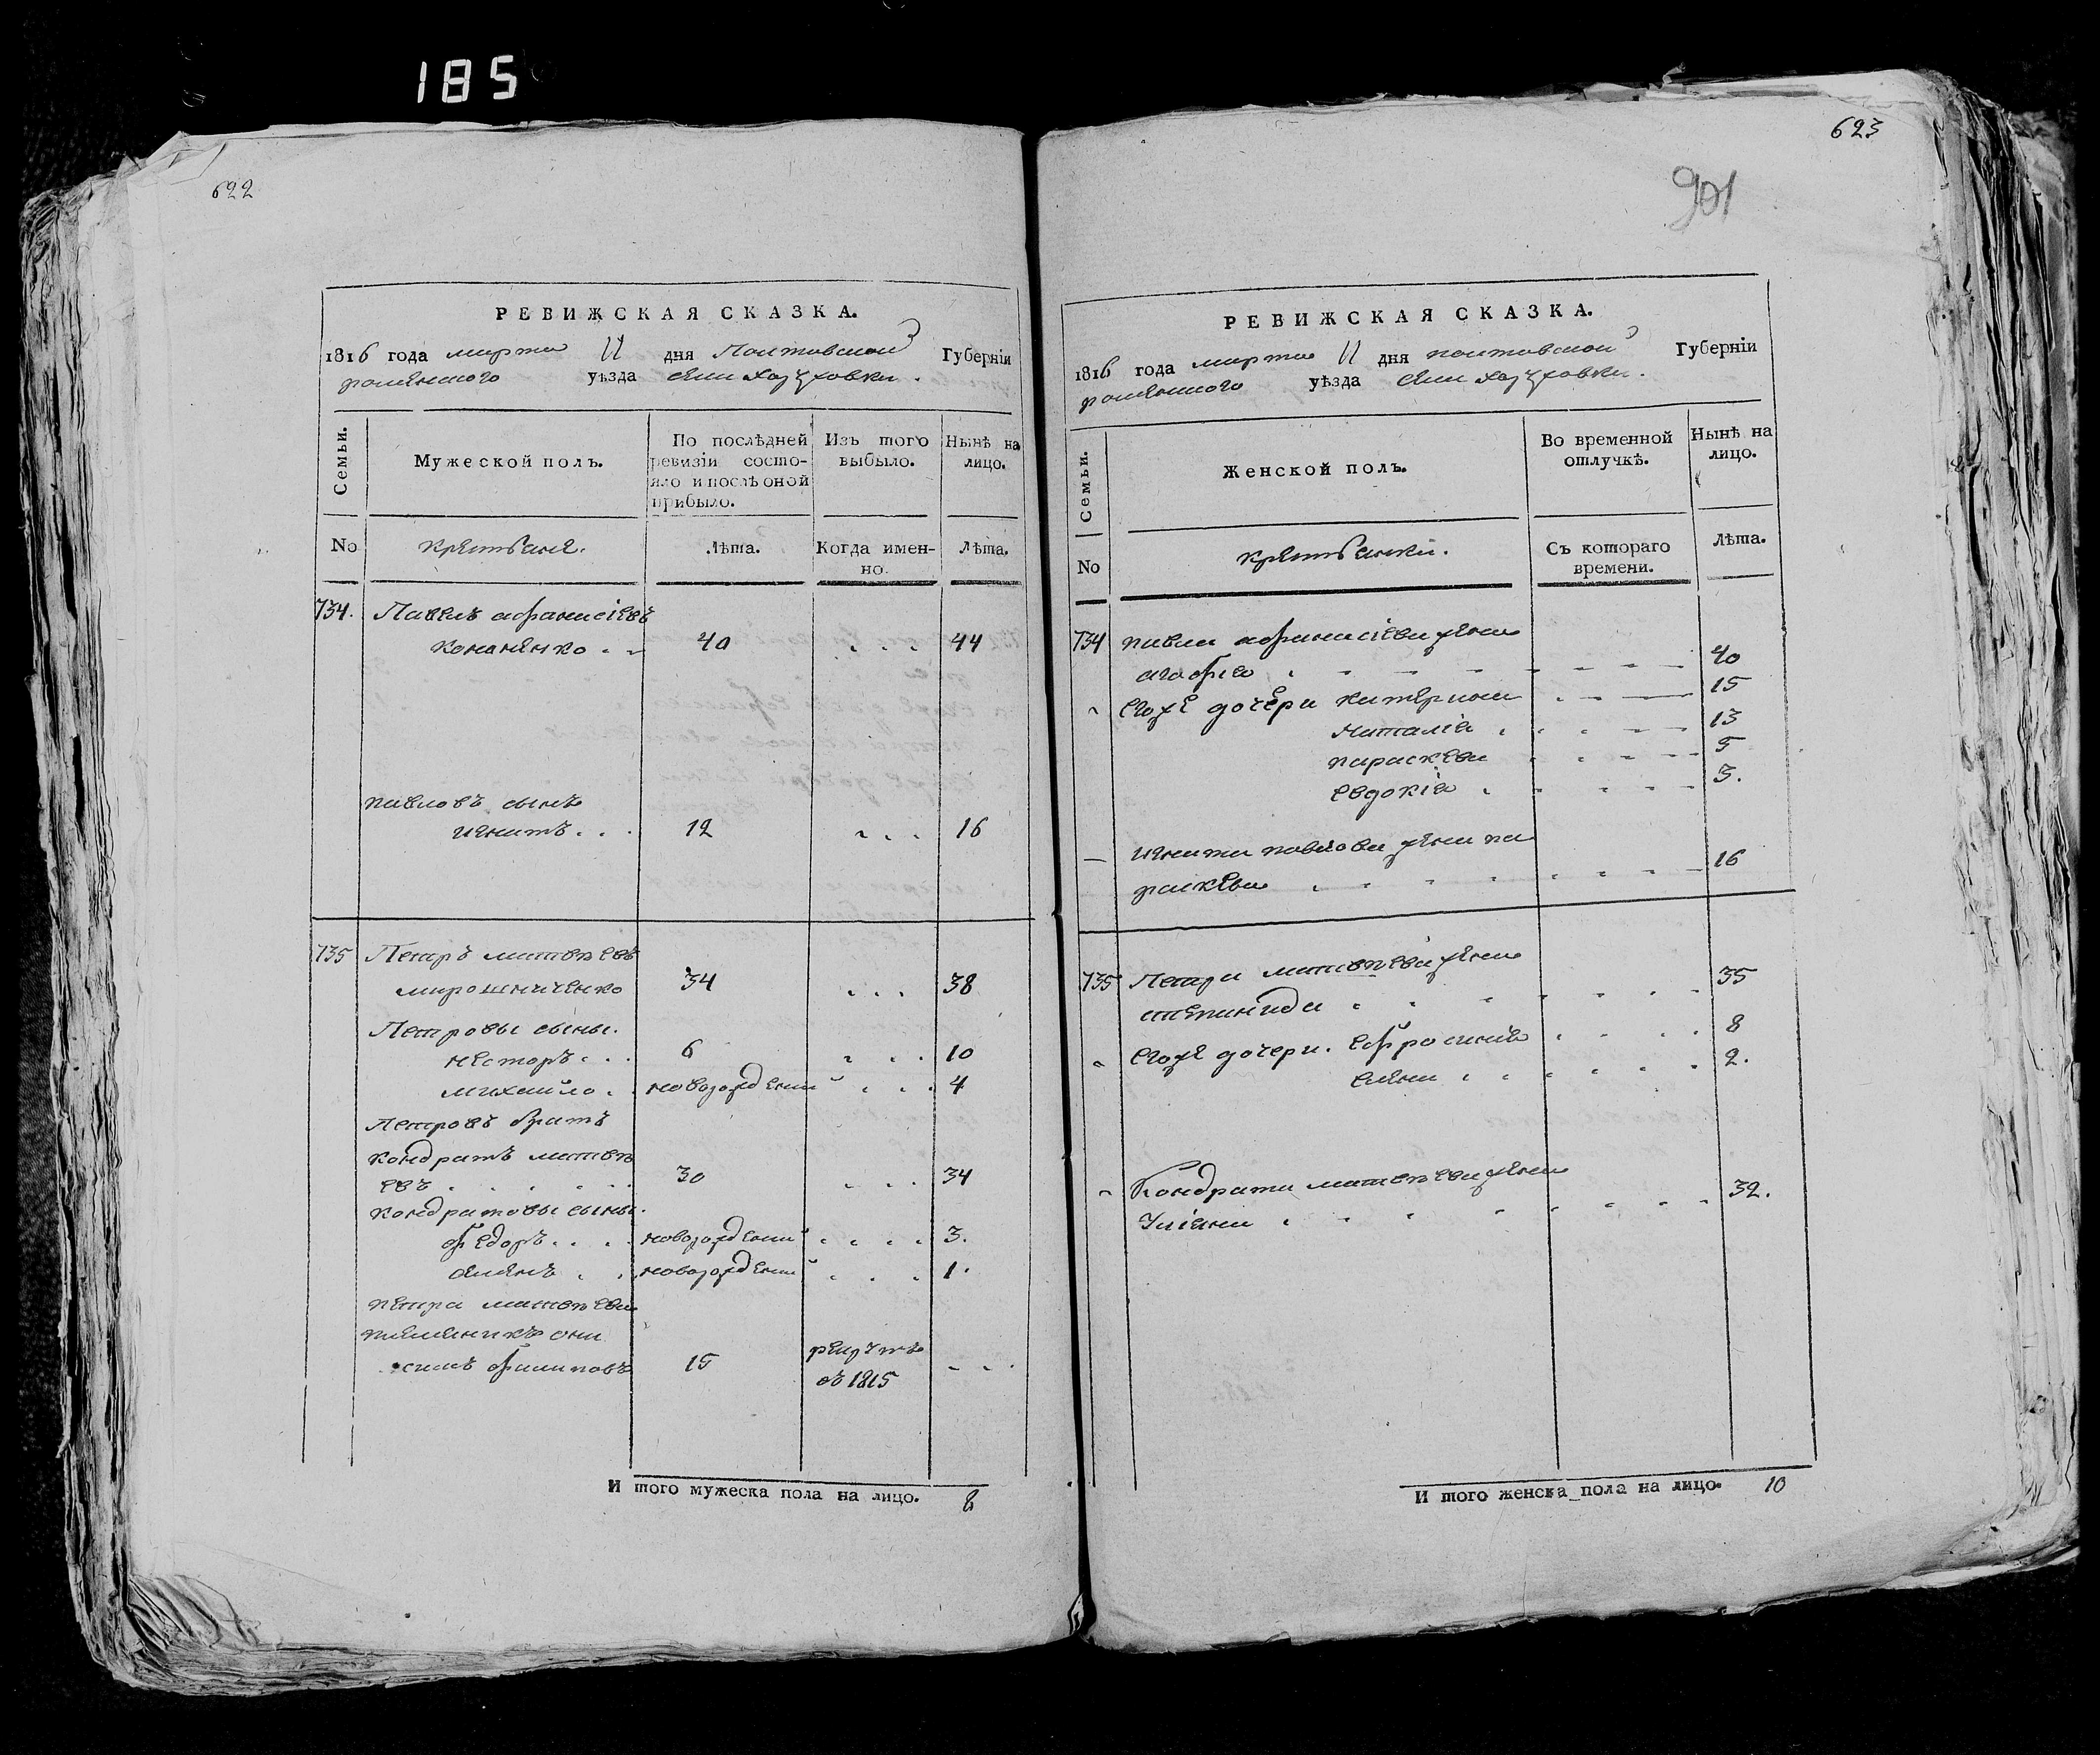 185
622
РЕВИЖСКАЯ СКАЗКА.
1816 года марта 11 дня Полтавской Губерніи
роменского уѣзда села хоружовки.
Семьи.
Мужеской полъ.
По послѣдней ревизіи состояло и послѣ оной прибыло.
Изъ того выбыло.
Нынѣ на лицо.
No
крестьяне.
Лѣта.
Когда именно.
Лѣта.
734. Павелъ афанасіевъ
кононенко 40 44
павловъ сынъ
игнатъ 12 16
735 Петръ матвѣевъ
мирошниченко 34 38
Петровы сыны.
несторъ 6 10
михаило новорожденный 4
Петровъ братъ
кондратъ матвѣ
евъ 30 34
кондратовы сыны.
федоръ новорожденный 3.
семенъ новорожденный 1.
петра матвѣева
племеникъ они
симъ филиповъ 15 рекрутъ
въ 1815
И того мужеска пола на лицо. 8
623
901
РЕВИЖСКАЯ СКАЗКА.
1816 года марта 11 дня полтавской Губерніи
роменского уѣзда села хоружовки.
Семьи.
Женской полъ.
Во временной отлучкѣ.
Нынѣ на лицо.
No
крестьянки.
Съ котораго времени.
Лѣта.
734 павла афанасіева жена
агафія 40
егоже дочери катерина 15
наталія 13
параскева 5
евдокія 3.
игната павлова жена па
раскева 16
735 Петра матвѣева жена
степанида 35
егоже дочери. ефросинія 8
елена 2.
Кондрата матвѣева жена
Уліяна 32.
И того женска пола на лицо. 10